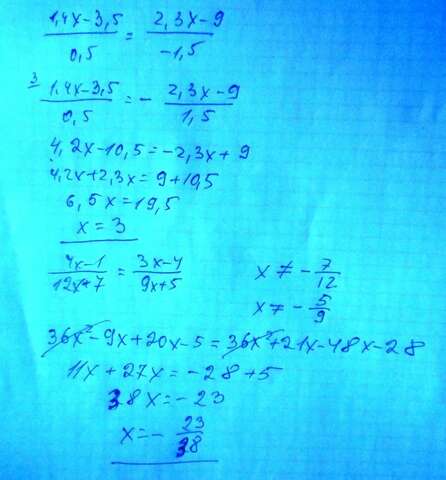 (1,4x-3,5)/0,5 = (2,3x-9)/-1,5
3 (1,4x-3,5)/0,5 = - (2,3x-9)/1,5
4,2x-10,5=-2,3x+9
4,2x+2,3x=9+10,5
6,5x=19,5
x=3
(4x-1)/(12x+7) = (3x-4)/(9x+5) x≠-7/12
x≠-5/9
36x²-9x+20x-5=36x²+21x-48x-28
11x+27x=-28+5
38x=-23
x=-23/38